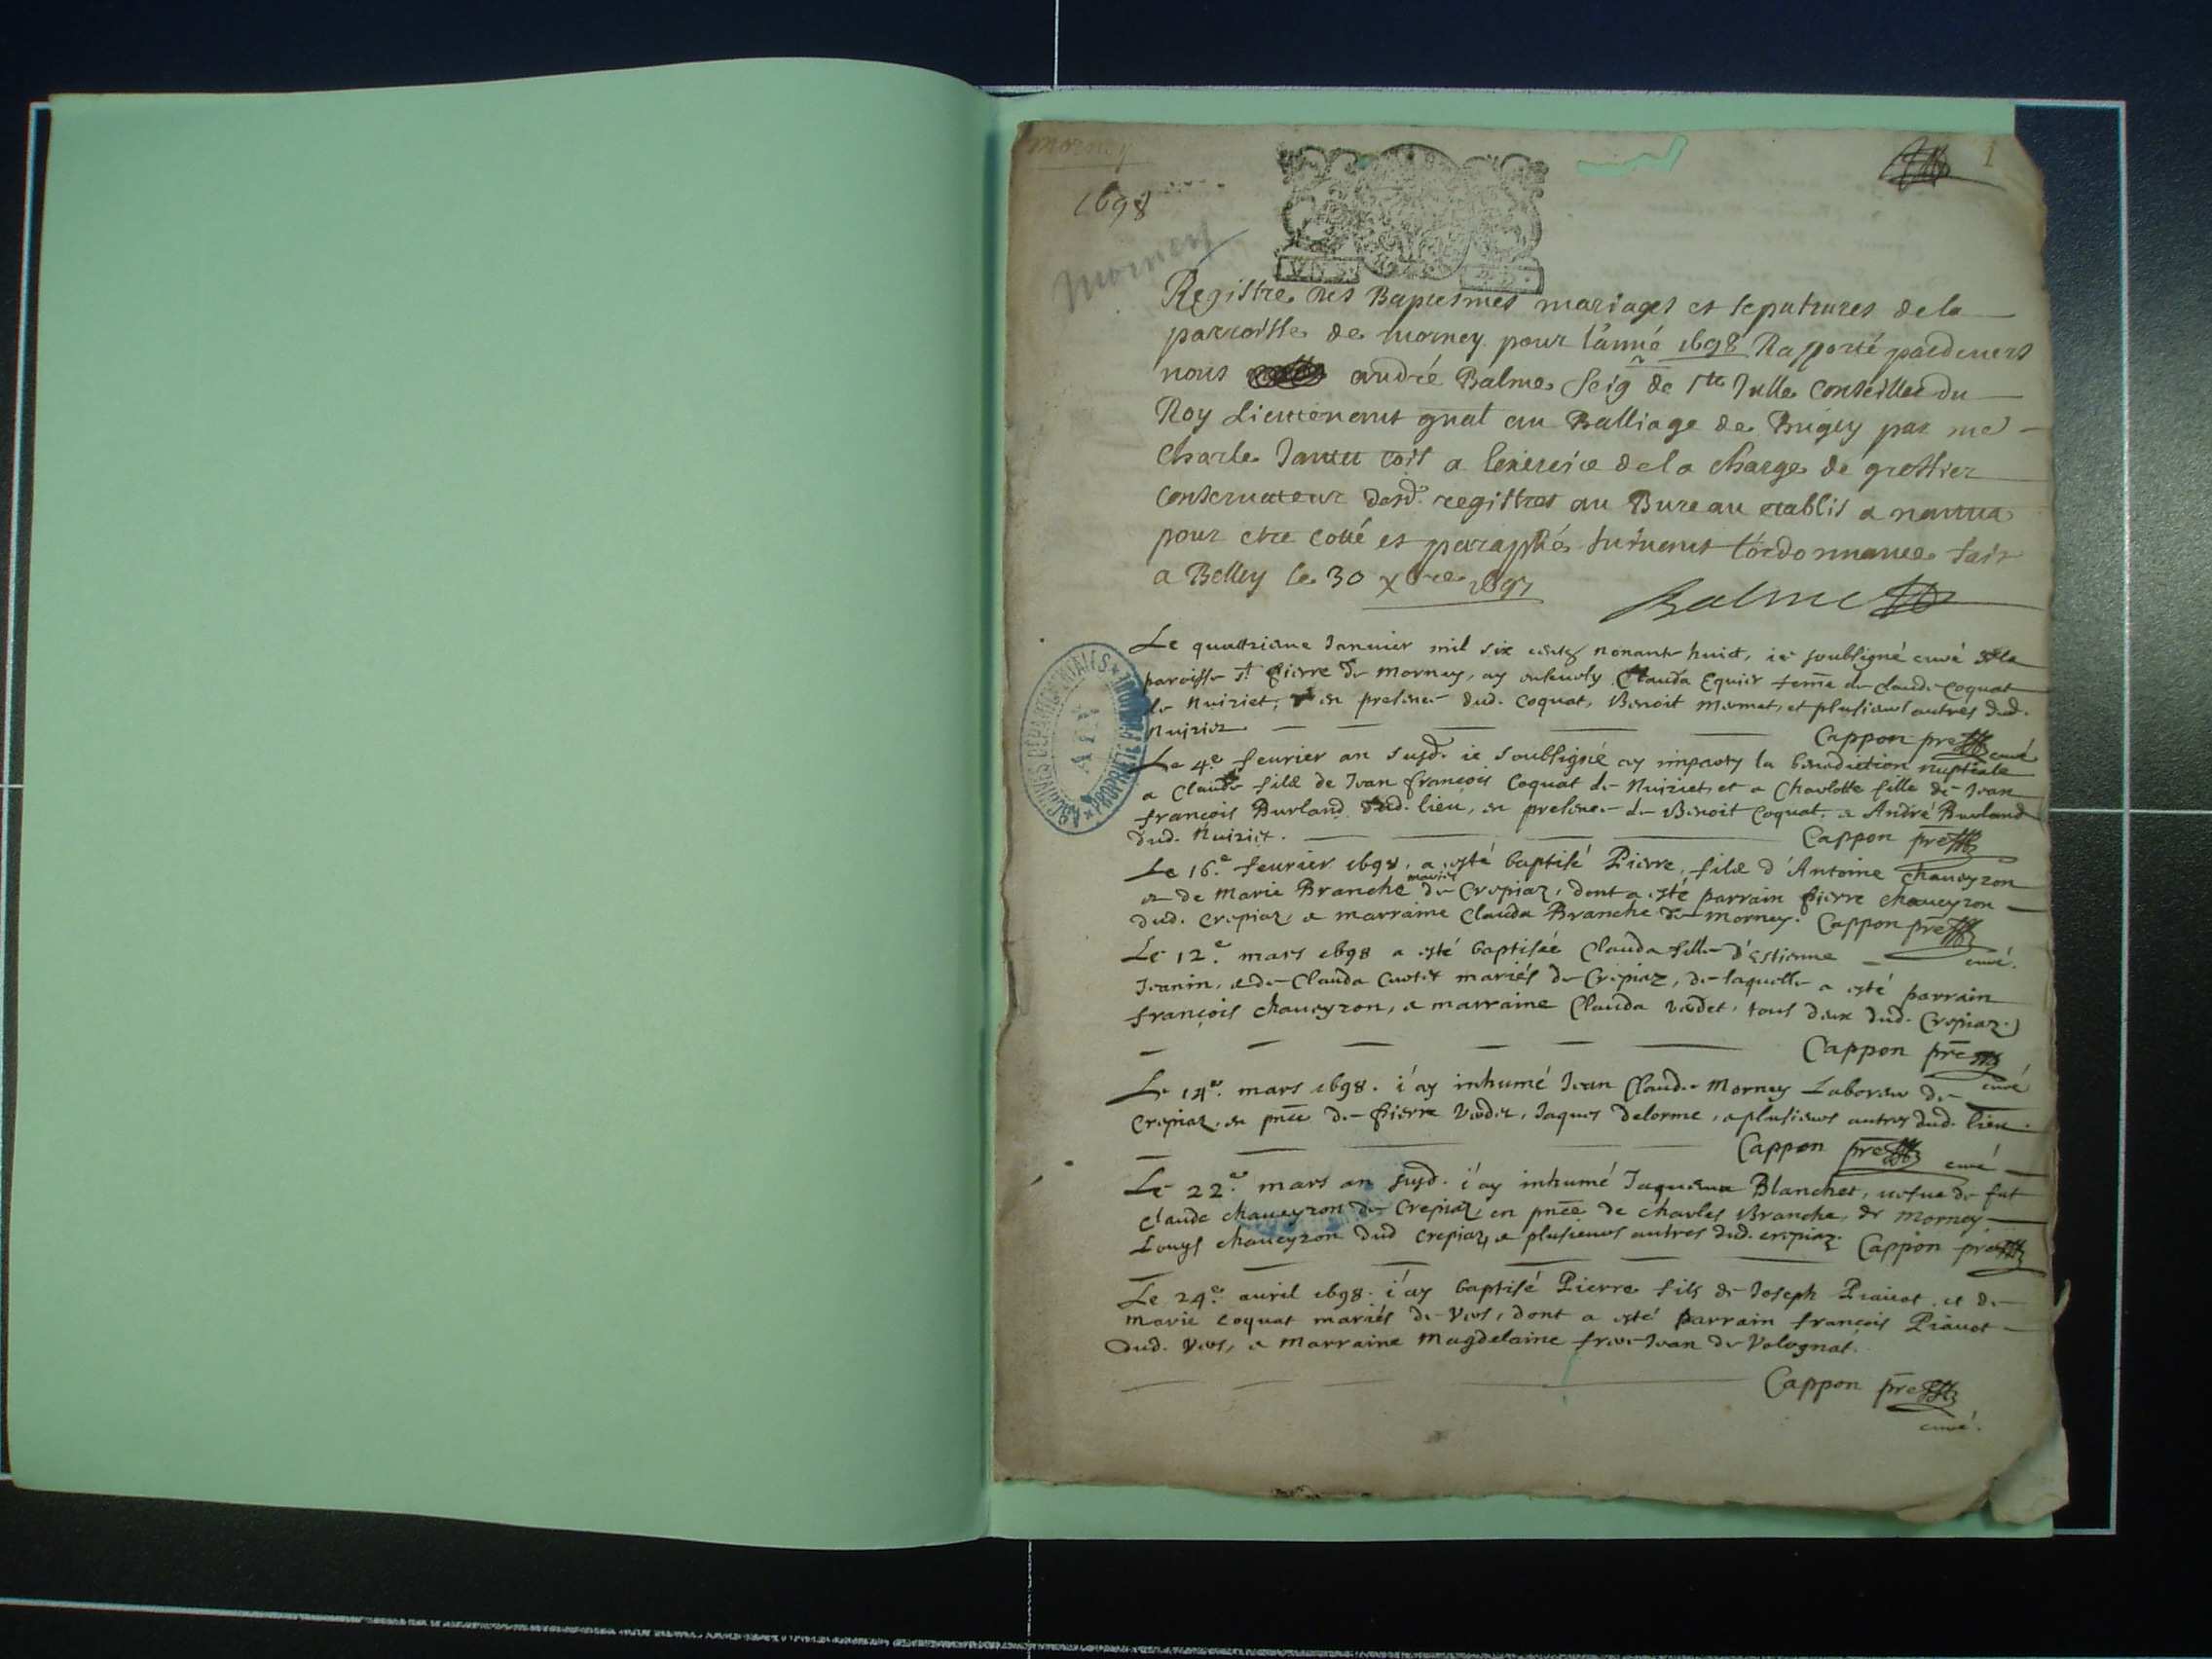 mornay
1
1698
Mornay
Registre des Baptesmes mariages et sepultures de la
parroisse de morney pour l'année 1698 Rapporté pardevers
nous andré Balme seig de Ste Julle Conseiller du
Roy Lieutenant gnal au Balliage de Bugey par me
Charle Jantet cois a lexercice de la charge de greffier
conservateur desd. registres au Bureau etablis a nantua
pour etre cotté et paraphé suivant l'ordonnance fait
a Belley le 30 xbre 1697
Balme
Le quattrieme Januier mil six cents nonante huict, ie soubsigné curé de la
paroisse St Pierre de Mornay, ay enseuely Clauda Equier feme de Claude Coquat
de Nuiriet, en presence dud. Coquat, Benoit Mermet, et plusieurs autres dud.
Nuiriet
Cappon pre curé
Le 4e feurier an susd. ie soubsigné ay imparty la benediction nuptiale
a Claude fils de Jean françois Coquat de Nuiriet, et a Charlotte fille de Jean
françois Burland dud. lieu, en presence de Benoit Coquat, e André Burland
dud. Nuiriet.
Cappon pre
Le 16e feurier 1698. a esté baptisé Pierre, fils d'Antoine Chaueyron
et de Marie Branche mariés de Crepiaz, dont a esté parrain Pierre Chaueyron
dud. Crepiaz e marraine Clauda Branche de Mornay. Cappon pre
curé.
Le 12e mars 1698 a esté baptisée Clauda fille d'Estienne
Jeanin, e de Clauda mariés de Crepiaz, de laquelle a esté parrain
françois Chaueyron, e marraine Clauda Verdet, tous deux dud. Crepiaz.
Cappon pre
curé
Le 14e mars 1698. i'ay inhumé Jean Claude Mornay Laboreur de
Crepiaz, en pnce de Pierre Verdet, Jaques Delorme, e plusieurs autres dud. lieu.
Cappon pre curé
Le 22e mars an susd. i'ay inhumé Jaquema Blanchet, uefue de fut
Claude Chaueyron de Crepiaz, en pnce de Charles Branche, de Mornay
Louys Chaueyron dud Crepiaz, e plusieurs autres dud. crepiaz. Cappon pre
Le 24e auril 1698. i'ay baptisé Pierre fils de Joseph Prauot et de
Marie Coquat mariés de Vers, dont a esté parrain françois Prauot
dud. Vers, e Marraine Magdelaine frere Jean de Volognat.
Cappon pre
curé.
ARCHIVES DÉPARTEMENTALES
AIN
PROPRIÉTÉ PUBLIQUE